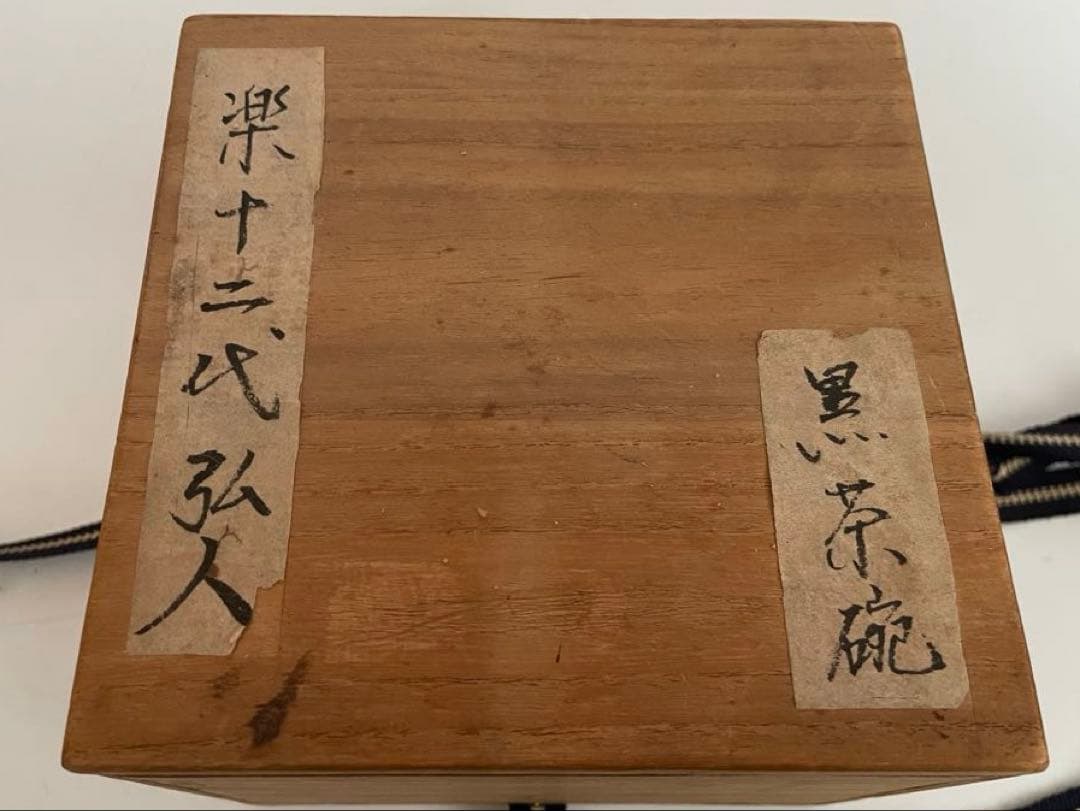 黒茶碗
楽十二代弘人